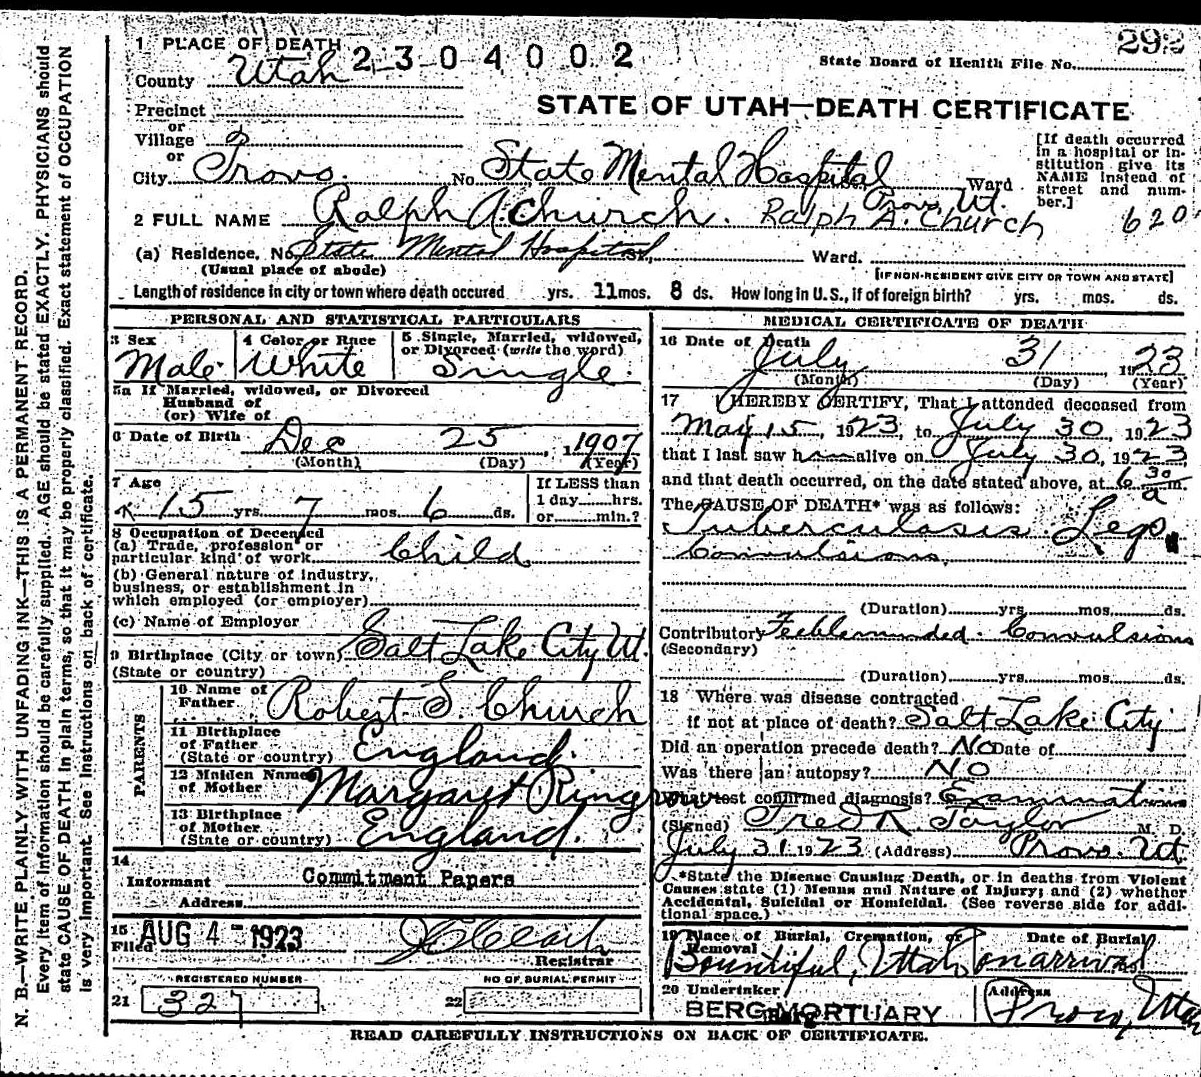 292
1 PLACE OF DEATH 2304002
State Board of Health File No.
County Utah
STATE OF UTAH—DEATH CERTIFICATE
Precinct
or
Village
or
City Provo. No State Mental Hospital Ward
Provo, Ut.
[If death occurred
in a hospital or in-
stitution give its
NAME instead of
street and num-
ber.]
620
2 FULL NAME Ralph A. Church. Ralph A. Church
(a) Residence. No State Mental Hospital, Ward.
(Usual place of abode)
[IF NON-RESIDENT GIVE CITY OR TOWN AND STATE]
Length of residence in city or town where death occured yrs. 11 mos. 8 ds. How long in U. S., if of foreign birth? yrs. mos. ds.
PERSONAL AND STATISTICAL PARTICULARS
3 Sex 4 Color or Race 5 Single, Married, widowed,
or Divorced (write the word)
Male White Single.
5a If Married, widowed, or Divorced
Husband of
(or) Wife of
6 Date of Birth Dec 25, 1907
(Month) (Day) (Year)
7 Age If LESS than
15 yrs. 7 mos. 6 ds. 1 day hrs.
or min.?
8 Occupation of Deceased
(a) Trade, profession or
particular kind of work Child
(b) General nature of industry,
business, or establishment in
which employed (or employer)
(c) Name of Employer
9 Birthplace (City or town) Salt Lake City Ut.
(State or country)
PARENTS
10 Name of
Father Robert S Church
11 Birthplace
of Father
(State or country) England.
12 Maiden Name
of Mother Margaret
13 Birthplace
of Mother
(State or country) England.
14
Informant Commitment Papers
Address
15
Filed AUG 4 - 1923
Registrar
REGISTERED NUMBER NO OF BURIAL PERMIT
21 327 22
MEDICAL CERTIFICATE OF DEATH
16 Date of Death
July 31, 1923
(Month) (Day) (Year)
17 I HEREBY CERTIFY, That I attended deceased from
May 15, 1923, to July 30, 1923
that I last saw him alive on July 30, 1923,
and that death occurred, on the date stated above, at 6 30 a m.
The CAUSE OF DEATH* was as follows:
Tuberculosis Legs,
Convulsions.
(Duration) yrs. mos. ds.
Contributory Feebleminded. Convulsions
(Secondary)
(Duration) yrs. mos. ds.
18 Where was disease contracted
if not at place of death? Salt Lake City
Did an operation precede death? No Date of
Was there an autopsy? No
What test confirmed diagnosis? Examination
(Signed) Fred R Taylor M. D.
July 31 1923 (Address) Provo. Ut.
*State the Disease Causing Death, or in deaths from Violent
Causes state (1) Menus and Nature of Injury; and (2) whether
Accidental, Suicidal or Homicidal. (See reverse side for addi-
tional space.)
19 Place of Burial, Cremation, or Date of Burial
Removal
Bountiful, Utah on arrival
20 Undertaker Address
BERG MORTUARY Provo, Utah
READ CAREFULLY INSTRUCTIONS ON BACK OF CERTIFICATE.
N. B.—WRITE PLAINLY WITH UNFADING INK—THIS IS A PERMANENT RECORD.
Every item of information should be carefully supplied. AGE should be stated EXACTLY. PHYSICIANS should
state CAUSE OF DEATH in plain terms, so that it may be properly classified. Exact statement of OCCUPATION
is very important. See Instructions on back of certificate.